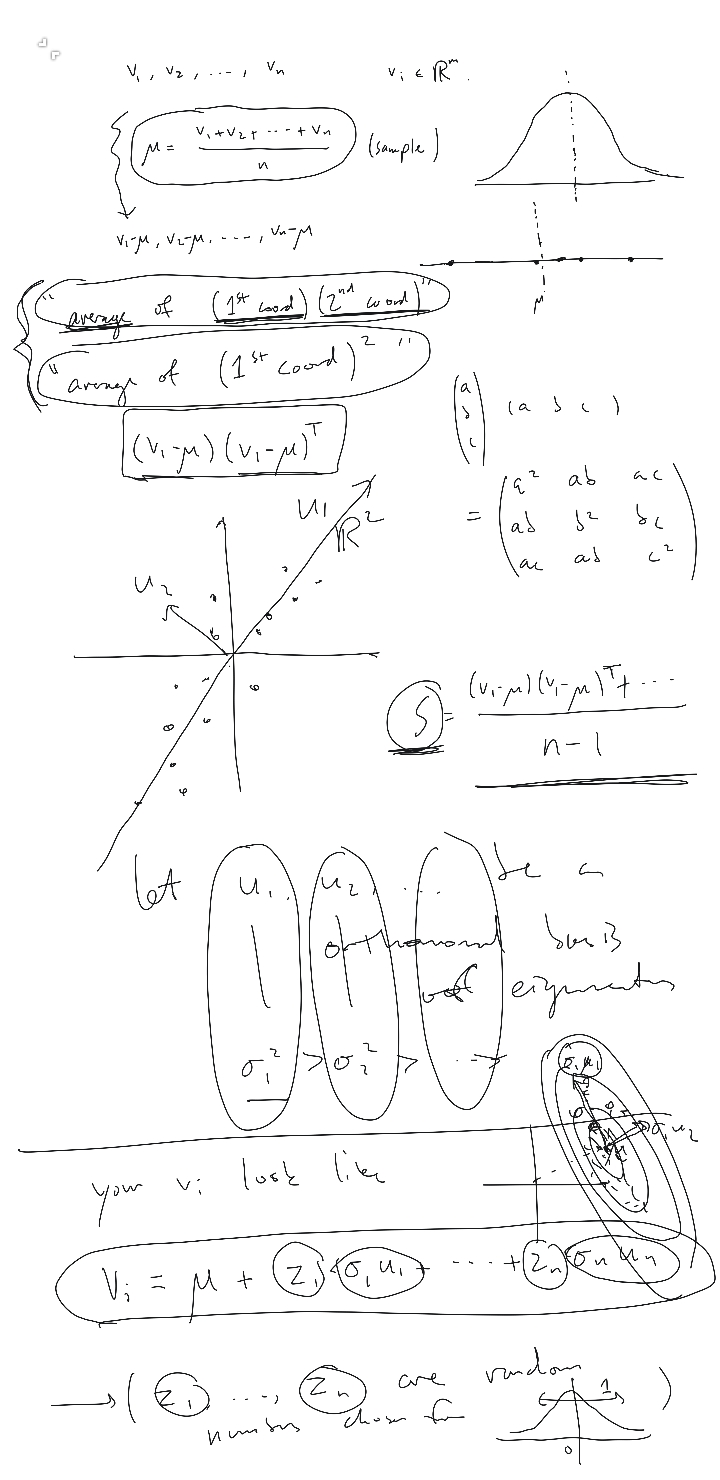 v₁, v₂, ..., vₙ    vᵢ ∈ ℝᵐ.
μ = (v₁+v₂+ ⋯ +vₙ)/n (sample)
v₁-μ, v₂-μ, ...., vₙ-μ
μ
"average of (1st coord) (2nd coord)"
"average of (1st coord)² "
(v₁-μ) (v₁-μ)ᵀ
(a b c) (a b c)
= (a² ab ac
ab b² bc
ac ab c²)
u₁
ℝ²
u₂
S = ((v₁-μ)(v₁-μ)ᵀ+ ⋯)/(n-1)
Let u₁, u₂, ... be a
orthonormal basis
of eigenvectors
σ₁² > σ₂² > ⋯ >
σ₁u₁
σ₁u₂
your vᵢ look like
Vᵢ = μ + z₁ σ₁u₁ + ⋯ + zₙ σₙuₙ
→ ( z₁, ..., zₙ are random
numbers chosen from
1 )
0